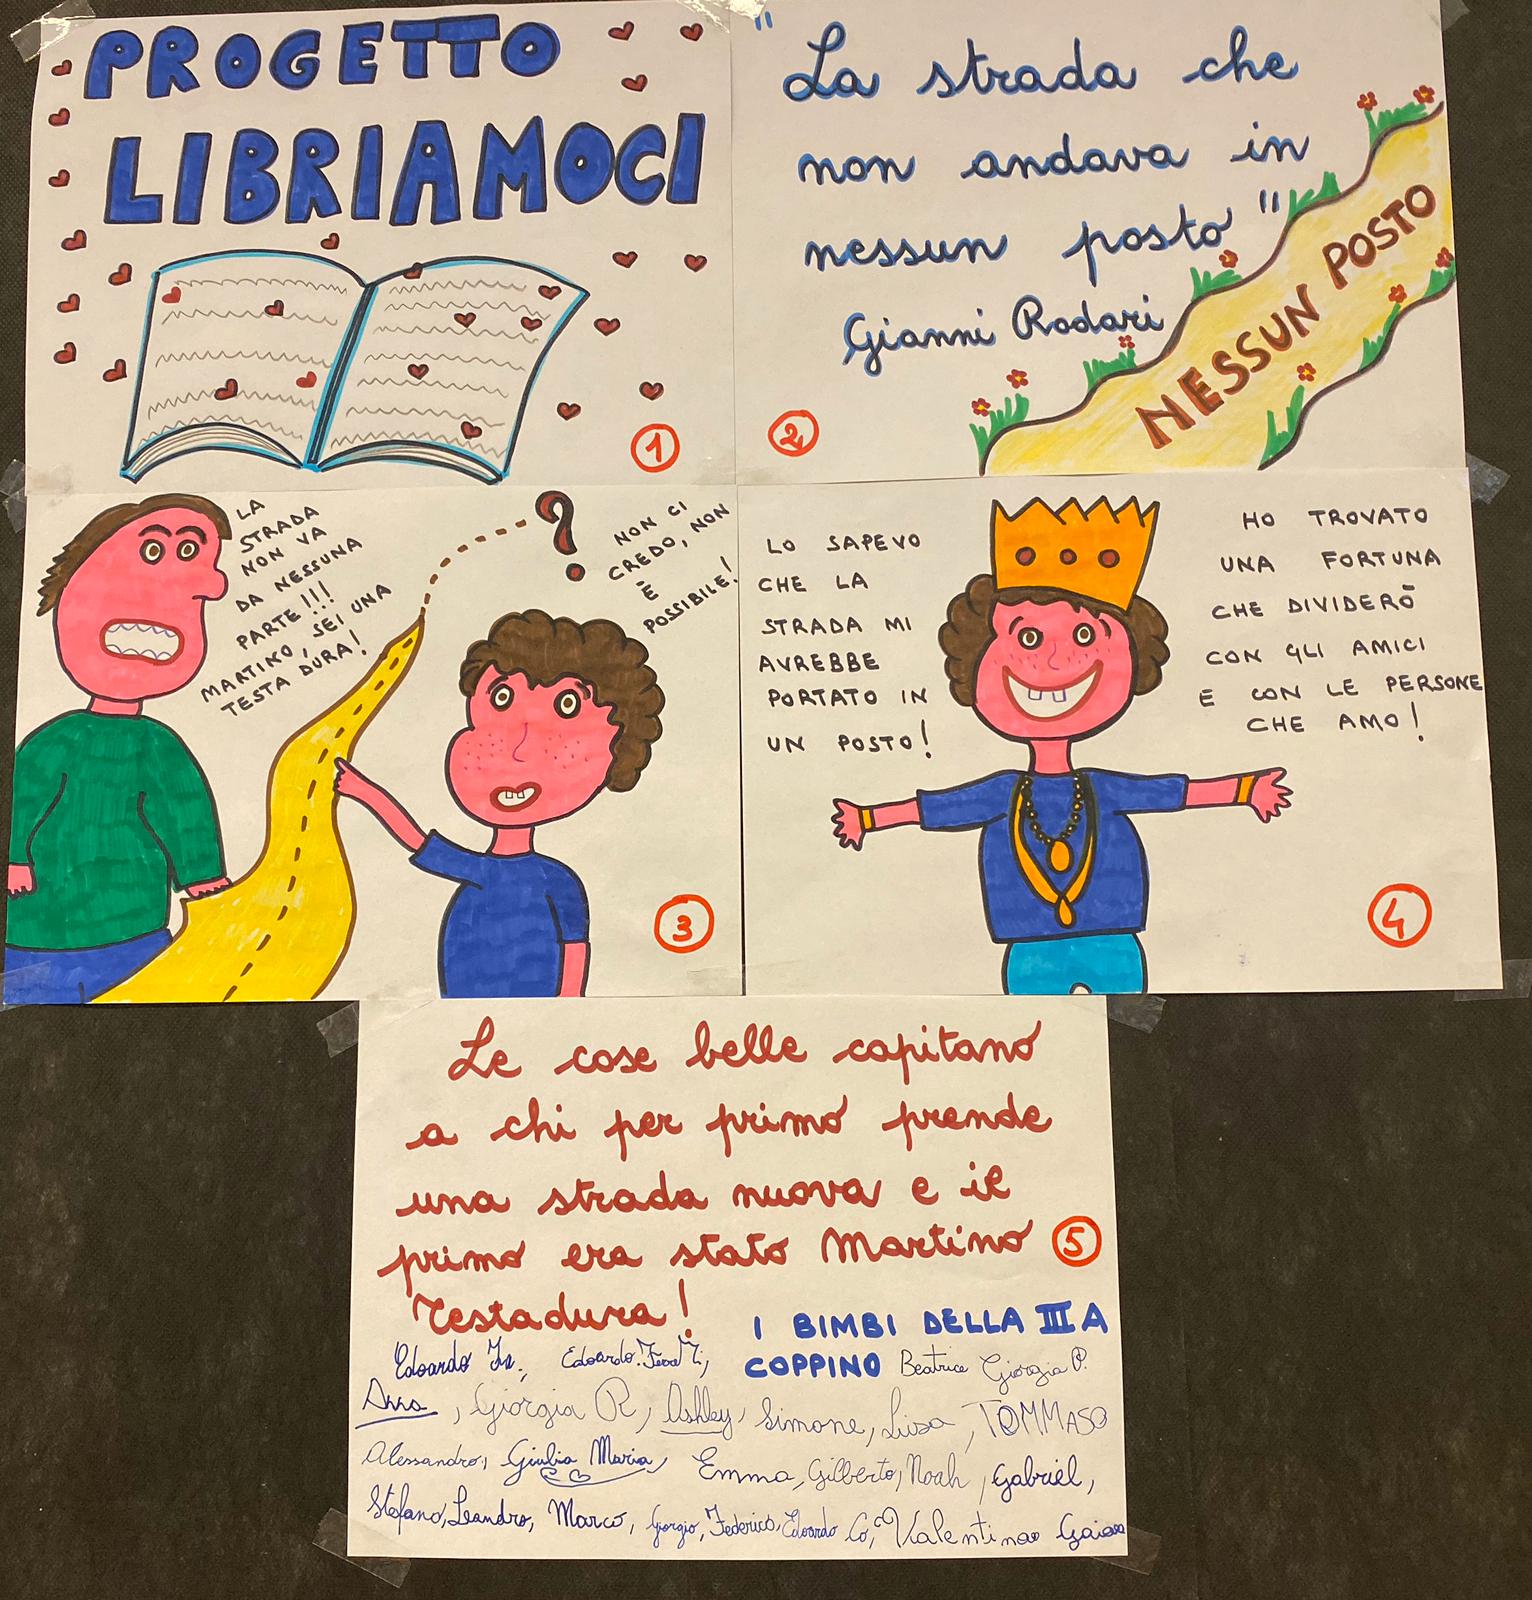 PROGETTO
LIBRIAMOCI
1
"La strada che
non andava in
nessun posto"
Gianni Rodari
NESSUN POSTO
2
LA
STRADA
NON VA
DA NESSUNA
PARTE!!!
MARTINO, SEI UNA
TESTA DURA!
?
NON CI
CREDO, NON
È
POSSIBILE!
3
LO SAPEVO
CHE LA
STRADA MI
AVREBBE
PORTATO IN
UN POSTO!
HO TROVATO
UNA FORTUNA
CHE DIVIDERÒ
CON GLI AMICI
E CON LE PERSONE
CHE AMO!
4
Le cose belle capitano
a chi per primo prende
una strada nuova e il
primo era stato Martino
Testadura!
5
I BIMBI DELLA III A
COPPINO
Edoardo Edoardo. Beatrice Giorgia P.
Anna, Giorgia R, Ashley, Simone, Luisa, TOMMASO
Alessandro, Giulia Maria, Emma, Gilberto, Noah, Gabriel,
Stefano, Leandro, Marco, Giorgio, Federico, Edoardo Co, Valentina Gaia